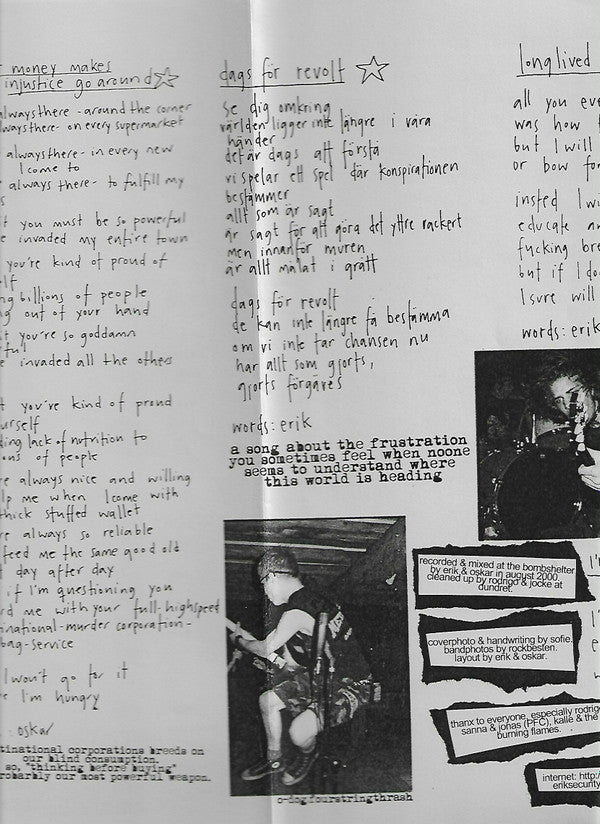 money makes
injustice go around
always there - around the corner
always there - on every supermarket
always there - in every new
I come to
always there - to fulfill my
you must be so powerful
invaded my entire town
you're kind of proud of
billions of people
out of your hand
you're so goddamn
invaded all the others
you're kind of proud
lack of nutrition to
of people
always nice and willing
me when I come with
thick stuffed wallet
always so reliable
feed me the same good old
day after day
if I'm questioning you
me with your full-highspeed
-murder corporation-
bag-service
I won't go for it
I'm hungry
: oskar
tinational corporations breeds on
our blind consumption.
so, "thinking before buying"
probarbly our most powerful weapon.
dags för revolt
Se dig omkring
världen ligger inte längre i våra
händer
det är dags att förstå
vi spelar ett spel där konspirationen
bestämmer
allt som är sagt
är sagt för att göra det yttre vackert
men innanför muren
är allt målat i grått
dags för revolt
de kan inte längre få bestämma
om vi inte tar chansen nu
har allt som gjorts,
gjorts förgäves
words: erik
a song about the frustration
you sometimes feel when noone
seems to understand where
this world is heading
o-dog fourstringthrash
longlived
all you eve
was how
but I will
or bow for
insted I wi
educate an
fucking bre
but if I do
I sure will
words: erik
recorded & mixed at the bombshelter
by erik & oskar in august 2000.
cleaned up by rodrigo & jocke at
dundret.
coverphoto & handwriting by sofie.
bandphotos by rockbesten.
layout by erik & oskar.
thanx to everyone, especially rodrigo
sanna & jonas (PFC), kalle & the
burning flames.
internet: http:/
eriksecurity